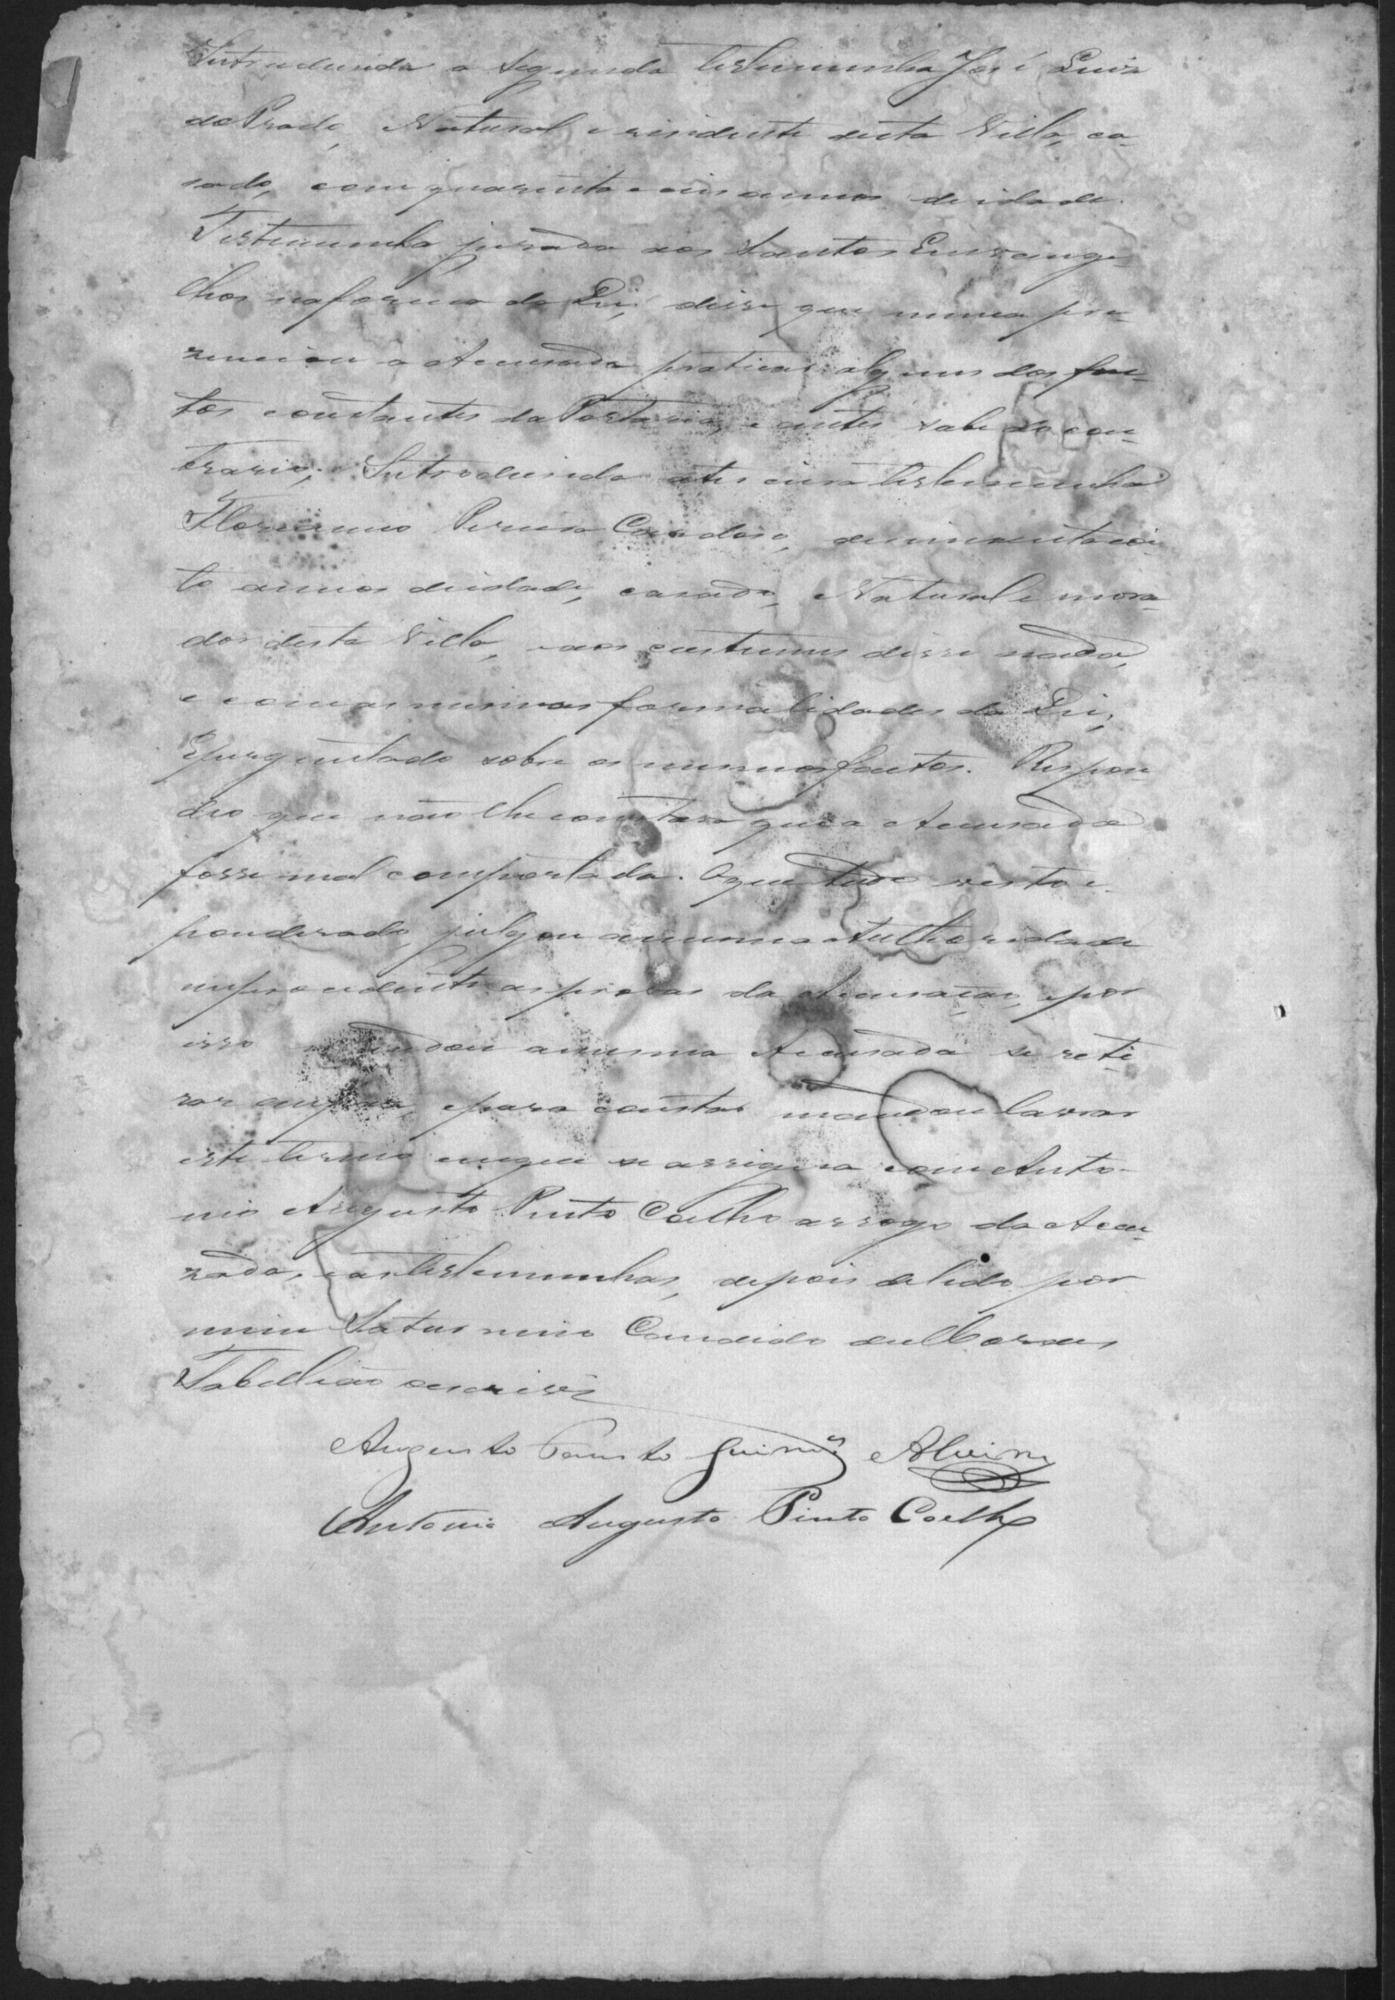 Introduzida a segunda testemunha José Luiz
do Prado, Natural e rezidente desta Villa, ca-
sado, com quarenta e seis annos de idade.
Testemunha jurada aos Santos Euvange-
lhos na forma da Lei, disse que nunca pre-
zenciou a Accusada praticar alguns dos fac-
tos constantes da Portaria, e antes sabe do con-
trario; Introduzida a terceira testemunha
Floriano Pereira Cardoso, de cincoenta e oi-
to annos de idade, casado, Natural e mora-
dor desta Villa, e aos custumes disse nada,
e com as mesmas formalidades da Lei;
E perguntado sobre os mesmos factos. Respon-
deo que não lhe constava que a Accusada
fosse mal comportada. O que tudo visto e
ponderado, julgou a mesma Authoridade
improcedente as provas da Accusação, e por
isso mandou a mesma Accusada se reti-
rar em paz, e para constar mandou lavrar
este termo em que se assigna com Anto-
nio Augusto Pinto Coelho a rrogo da Accu-
zada, e as testemunhas, depois de lido por
mim Saturnino Candido de
Tabellião escrivi
Augusto Fausto Guimes Alvim
Antonio Augusto Pinto Coelho